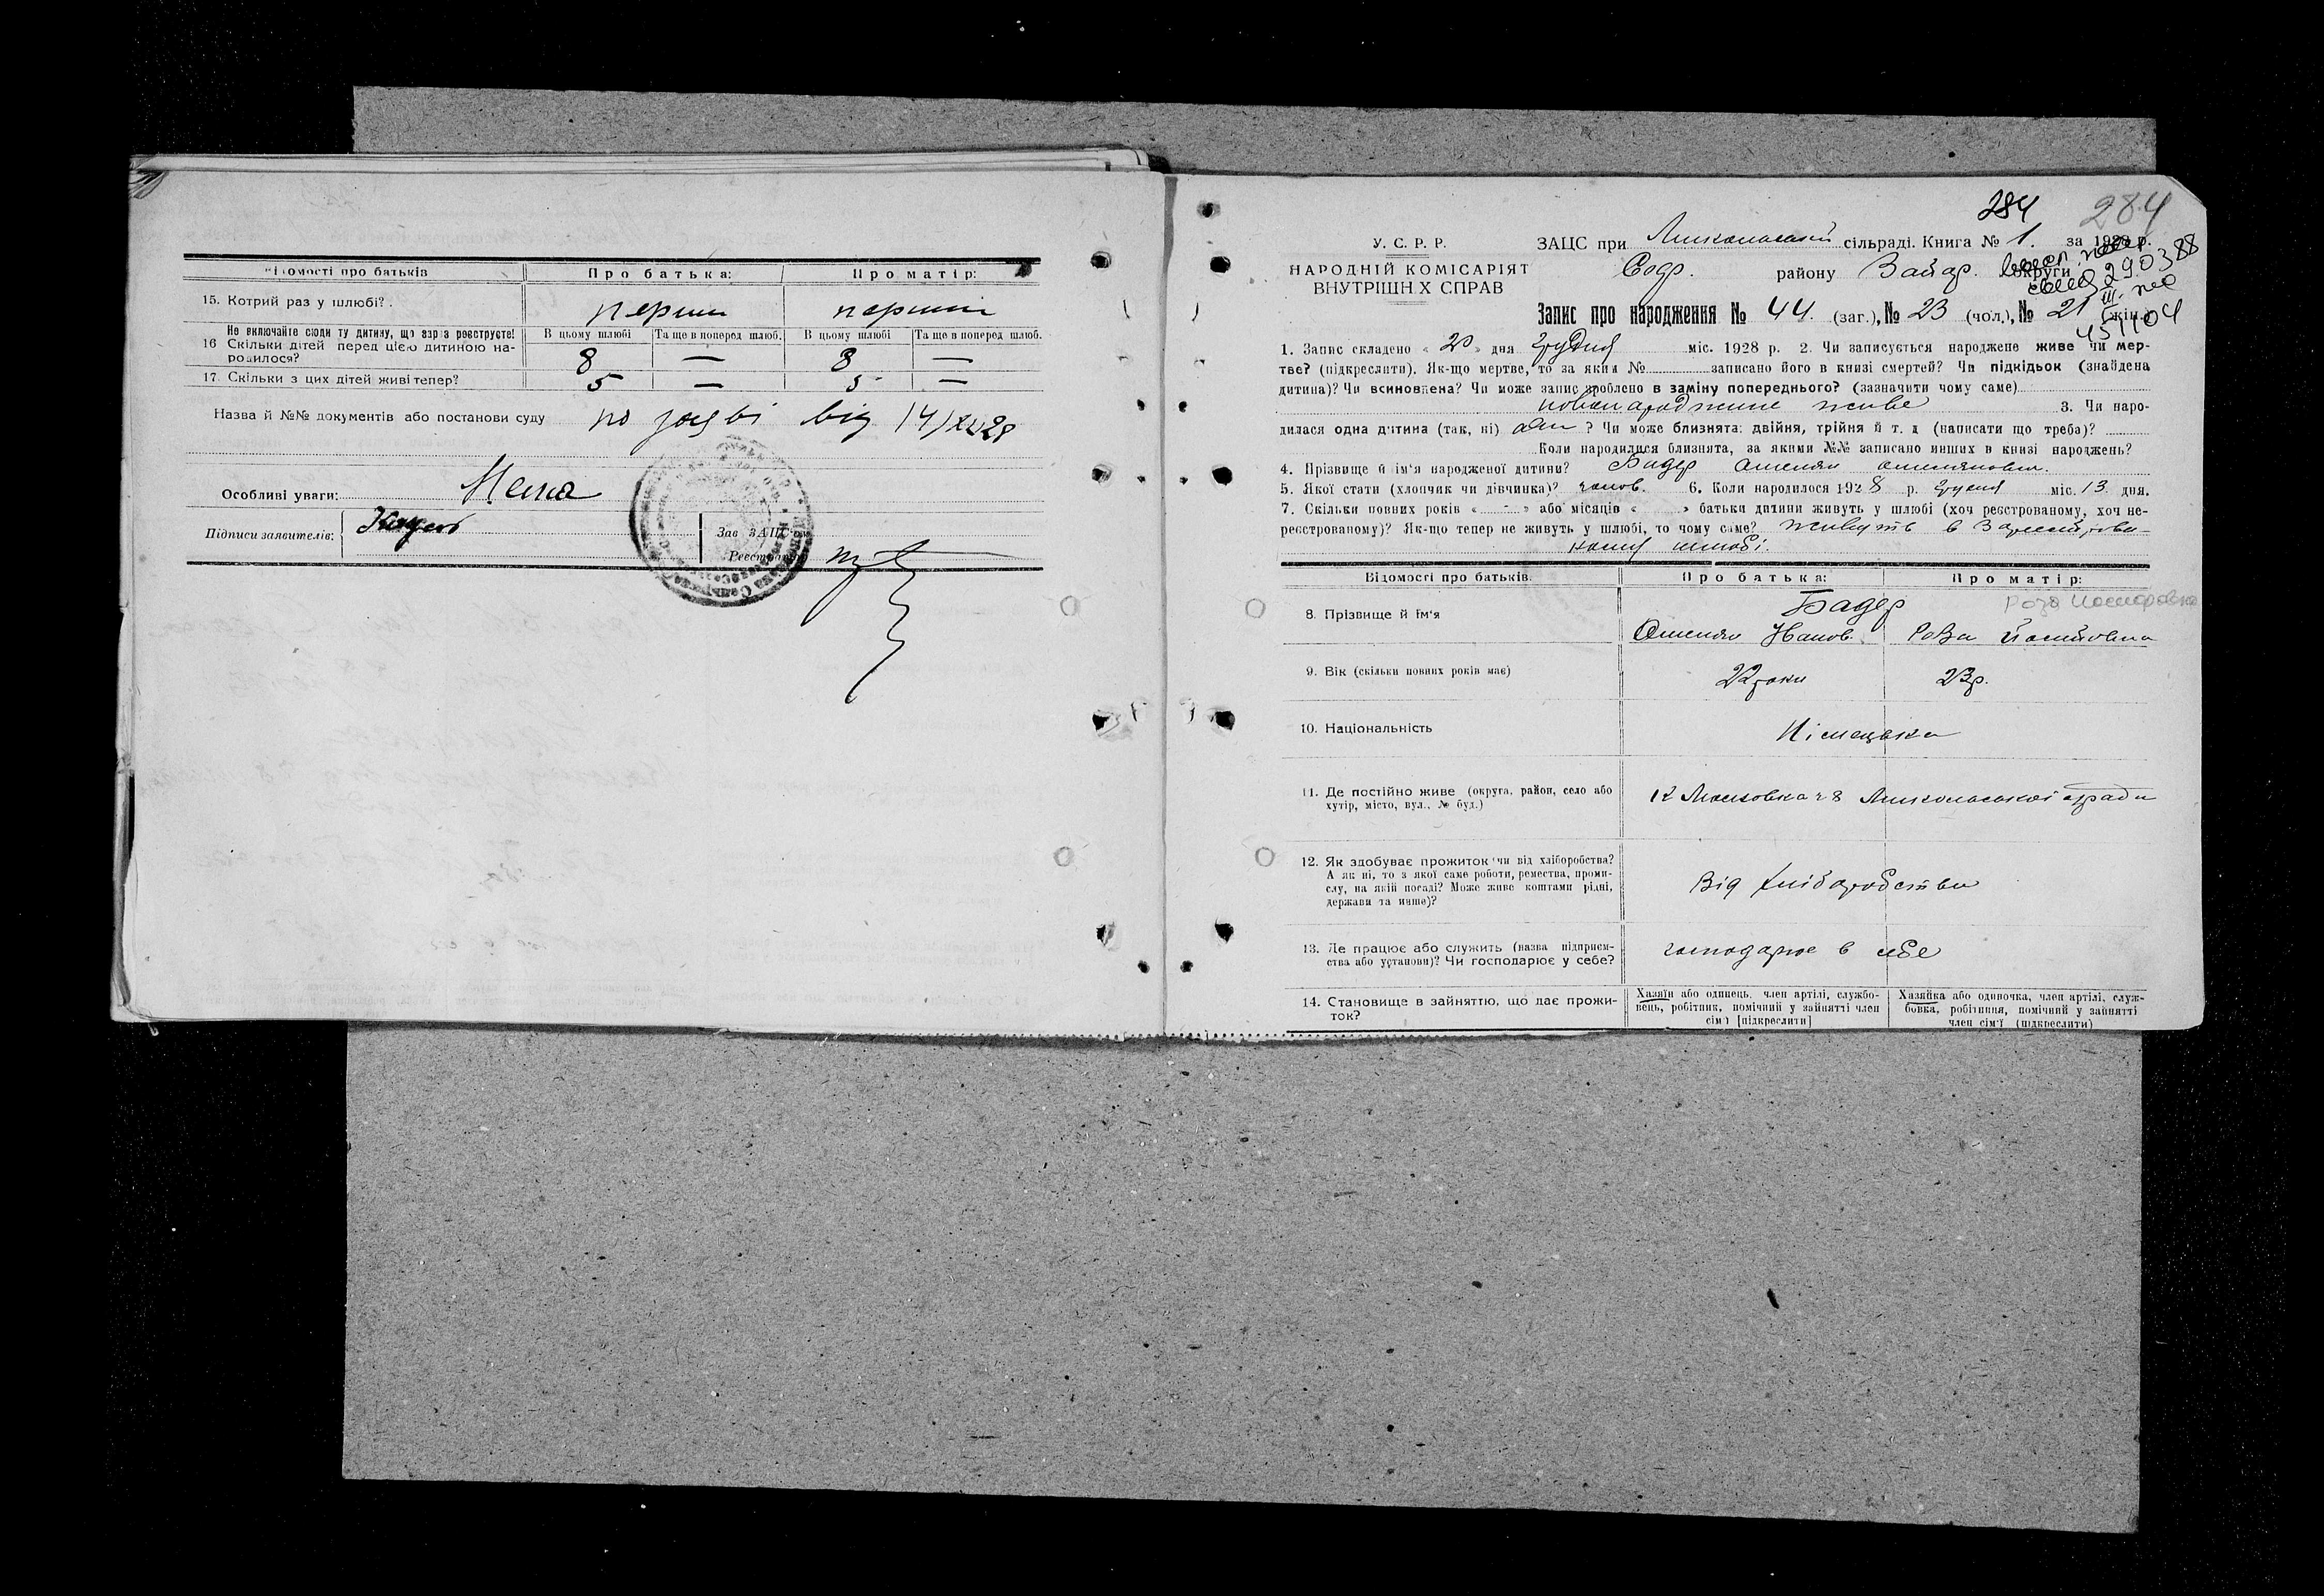 Відомості про батьків
Про батька:
Про матір:
15. Котрий раз у шлюбі?
перший
перший
Не включайте сюди ту дитину, що зараз реєструєте!
16 Скільки дітей перед цією дитиною народилося?
В цьому шлюбі
Та ще в поперед шлюб.
В цьому шлюбі
Та ще в поперед шлюб.
8 — 8 —
17. Скільки з цих дітей живі тепер?
5 — 5 —
Назва й №№ документів або постанови суду по заяві від 14/XII 28
Особливі уваги: Нема
Підписи заявителів:
Зав ЗАЦС'ом
Реєстратор
284 284
У. С. Р. Р.
НАРОДНІЙ КОМІСАРІЯТ
ВНУТРІШНІХ СПРАВ
ЗАЦС при сільраді. Книга № 1. за 1928 р.
району округи
290388
III
451104
Запис про народження № 44. (заг.), № 23 (чол.), № 21 (жін.)
1. Запис складено « 20 » дня грудня міс. 1928 р. 2. Чи записується народжене живе чи мер-
тве? (підкреслити). Як-що мертве, то за яким № записано його в книзі смертей? Чи підкідьок (знайдена
дитина)? Чи всиновлена? Чи може запис зроблено в заміну попереднього? (зазначити чому саме)
новонароджене живе 3. Чи наро-
дилася одна дитина (так, ні) ? Чи може близнята: двійня, трійня й т. д (написати що треба)?
Коли народилися близнята, за якими №№ записано инших в книзі народжень?
4. Прізвище й ім'я народженої дитини? Бадер
5. Якої стати (хлопчик чи дівчинка)? чолов. 6. Коли народилося 1928 р. грудня міс. 13. дня.
7. Скільки повних років « - » або місяців « » батьки дитини живуть у шлюбі (хоч реєстрованому, хоч не-
реєстрованому)? Як-що тепер не живуть у шлюбі, то чому саме? живуть в зареєстрова-
ному шлюбі.
Відомості про батьків.
Про батька:
Про матір:
8. Прізвище й ім'я
Бадер
Роза
Іванов.
Роза
9. Вік (скільки повних років має)
22 роки
23 р.
10. Національність
Німецька
11. Де постійно живе (округа, район, село або
хутір, місто, вул., № буд.)
12. Як здобуває прожиток чи від хліборобства?
А як ні, то з якої саме роботи, ремества, проми-
слу, на якій посаді? Може живе коштами рідні,
держави та инше)?
Від хліборобства
13. Де працює або служить (назва підприєм-
ства або установи)? Чи господарює у себе?
господарює в себе
14. Становище в зайняттю, що дає прожи-
ток?
Хазяїн або одинець, член артілі, службо-
вець, робітник, помічний у зайнятті член
сім'ї [підкреслити]
Хазяйка або одиночка, член артілі, служ-
бовка, робітниця, помічний у зайнятті
член сім'ї (підкреслити)